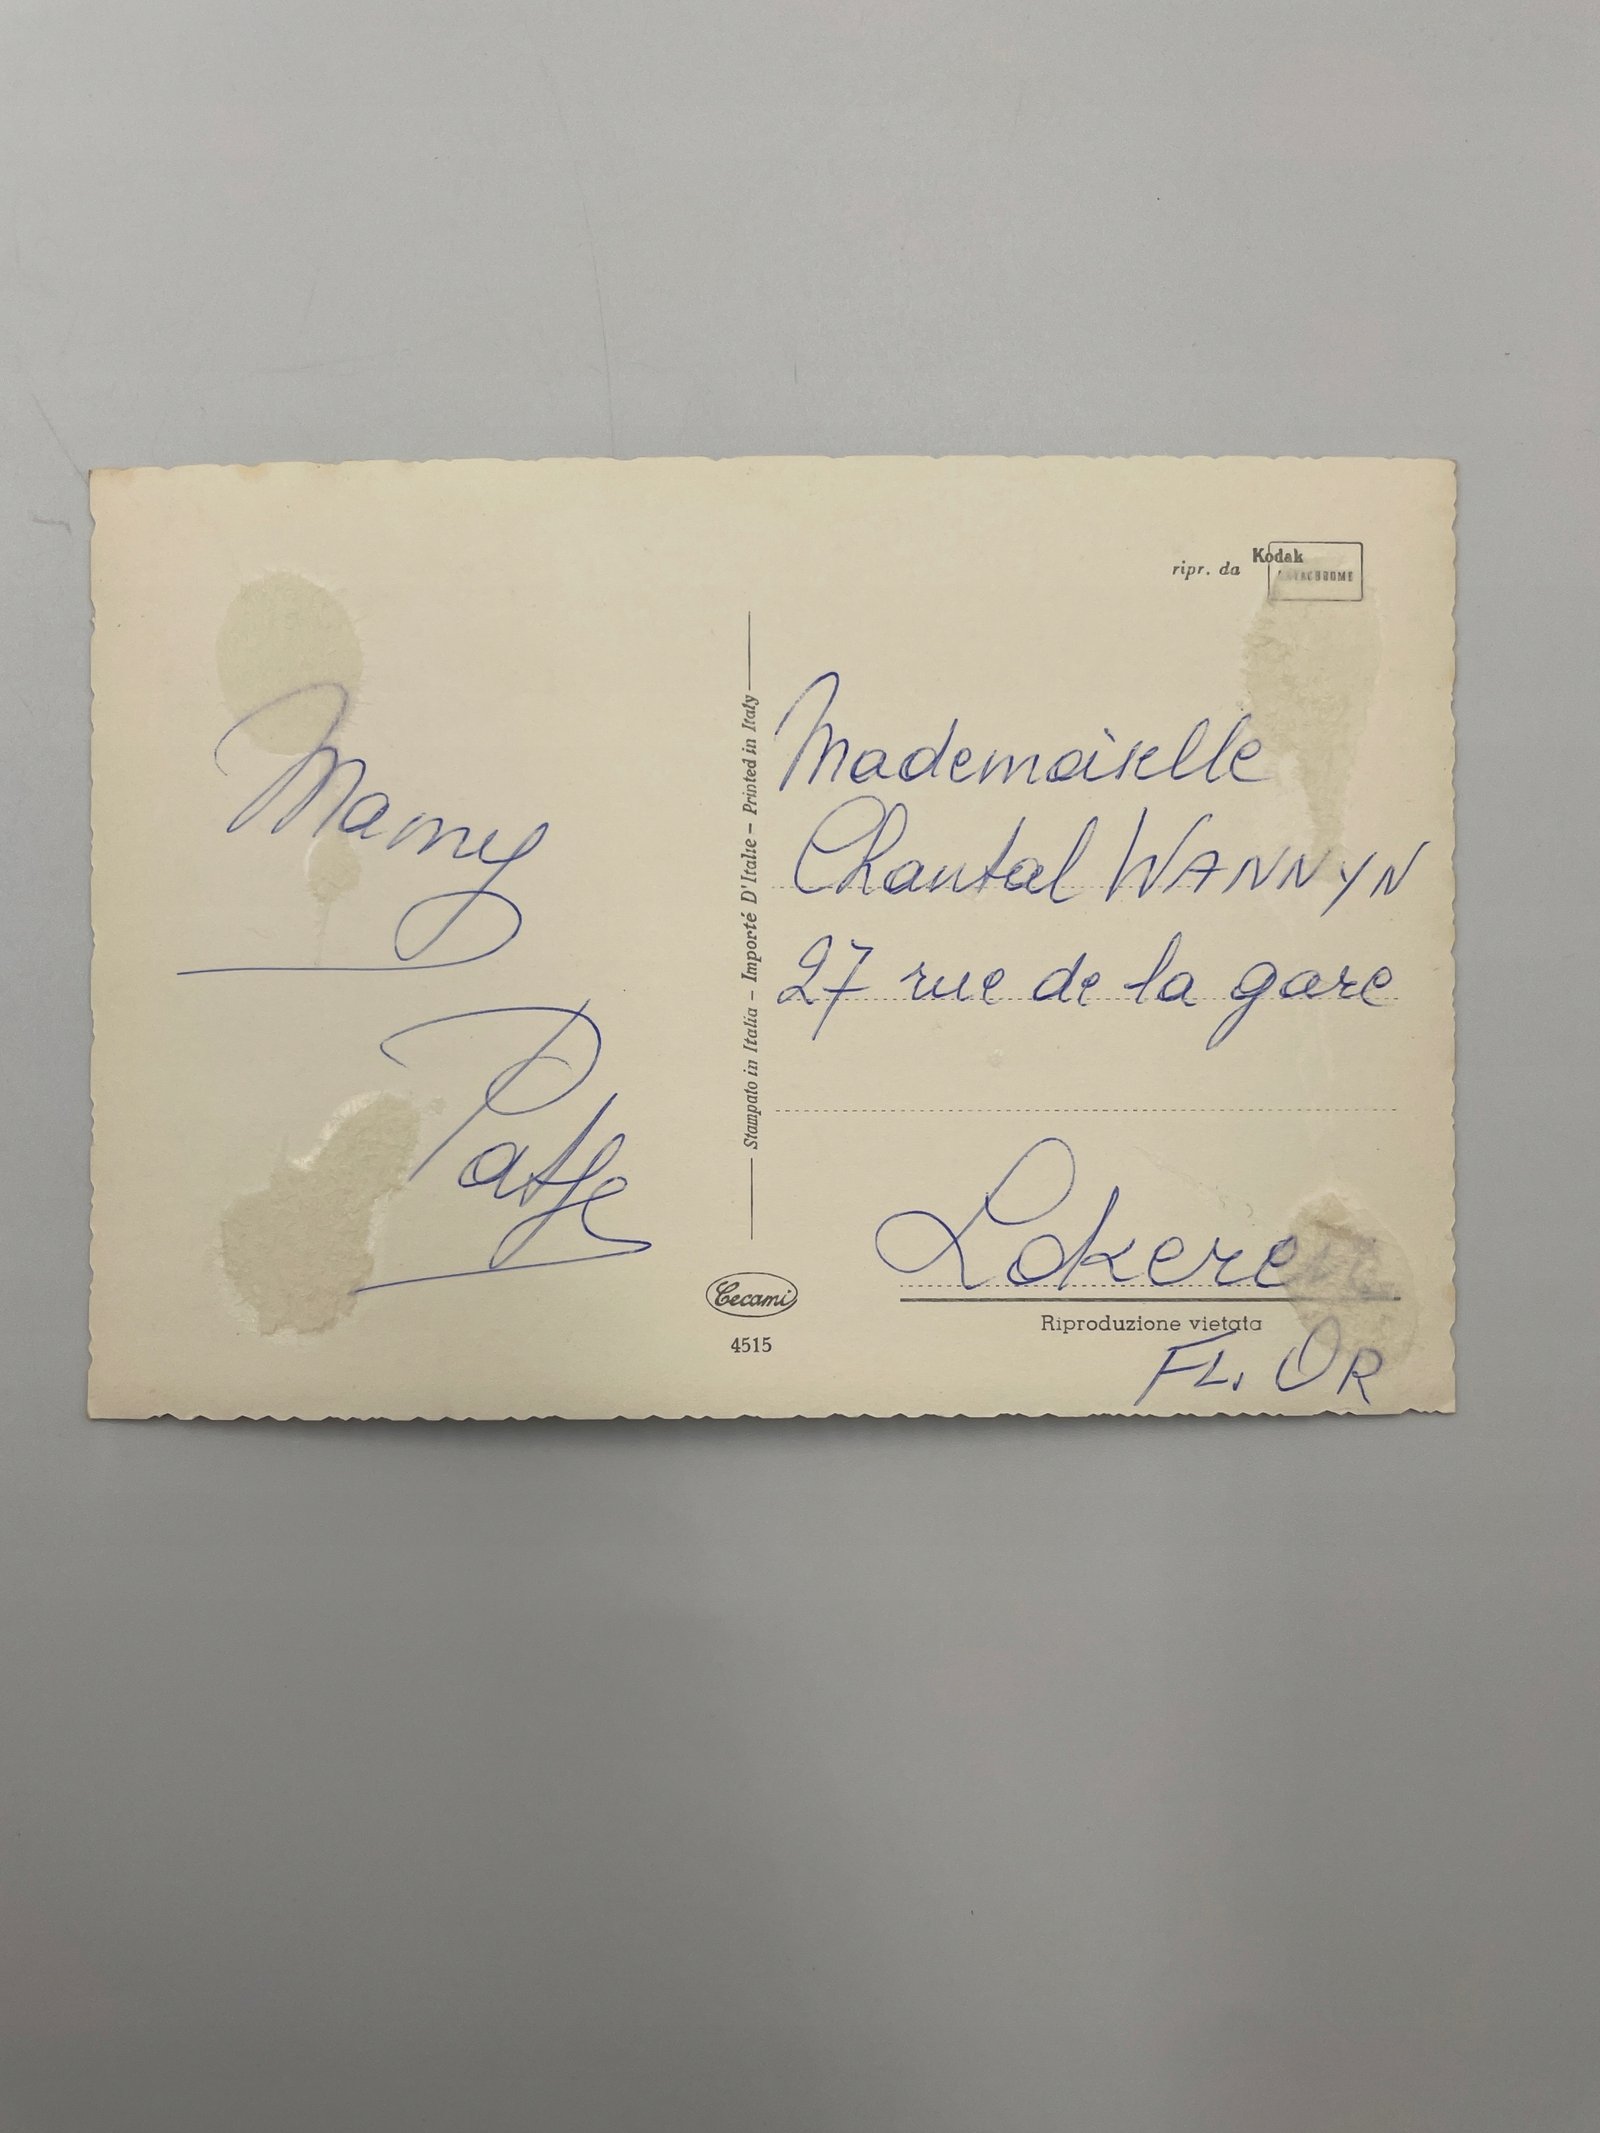 Mamy
ripr. da Kodak
Mademoiselle
Chantal WANNYN
27 rue de la gare
Lokere
FL. OR
Stampato in Italia - Importé D'Italie - Printed in Italy
Cecami
4515
Riproduzione vietata